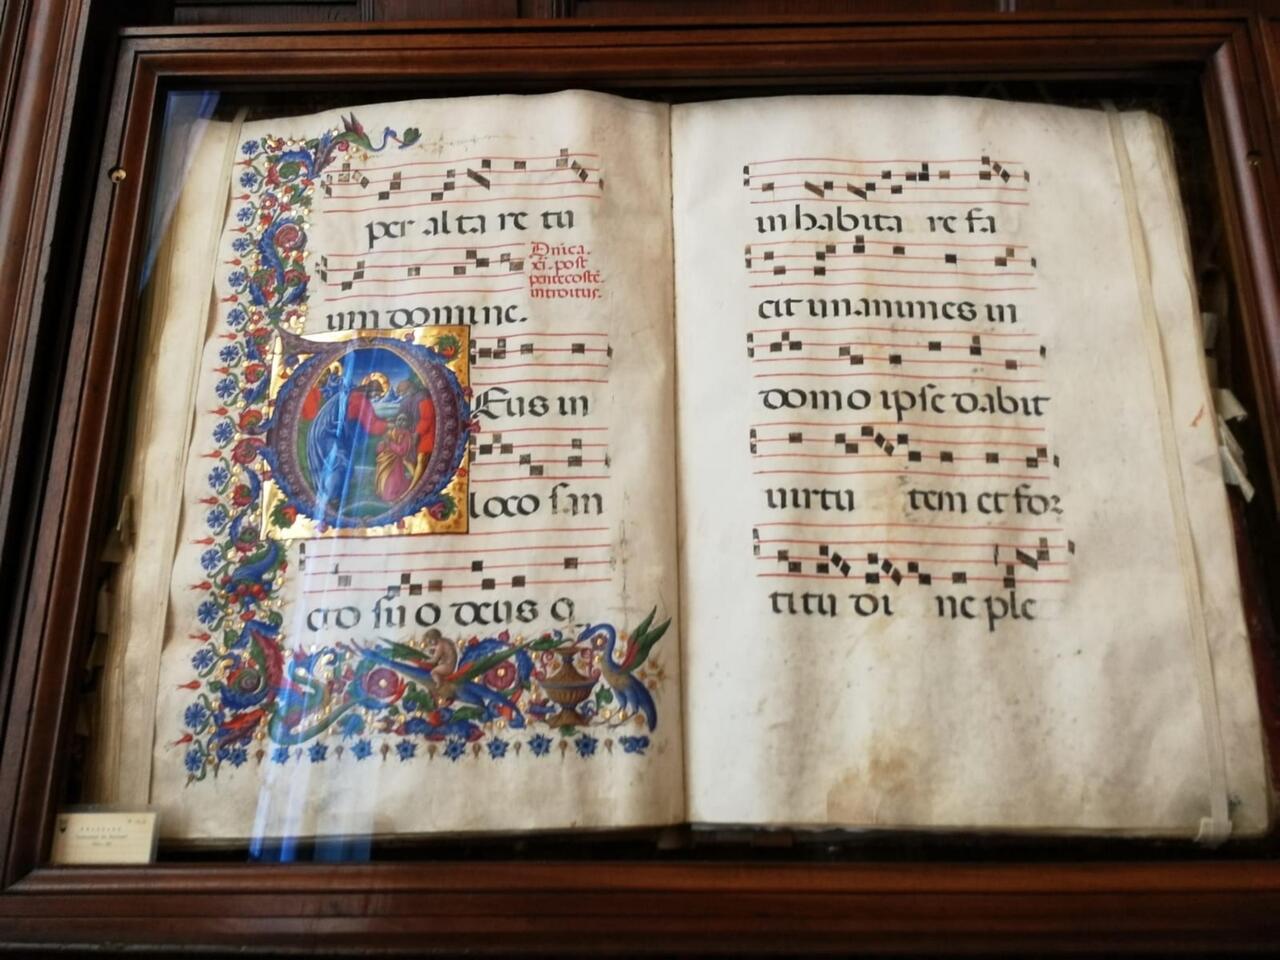 per al ta re tu
um domi nc.
Dn̄ica.
xi. post
pentecostē.
introitus.
Eus in
loco san
cto su o deus q
in habita re fa
cit unanimes in
domo ipse dabit
uirtu tem et for
titu di ne ple